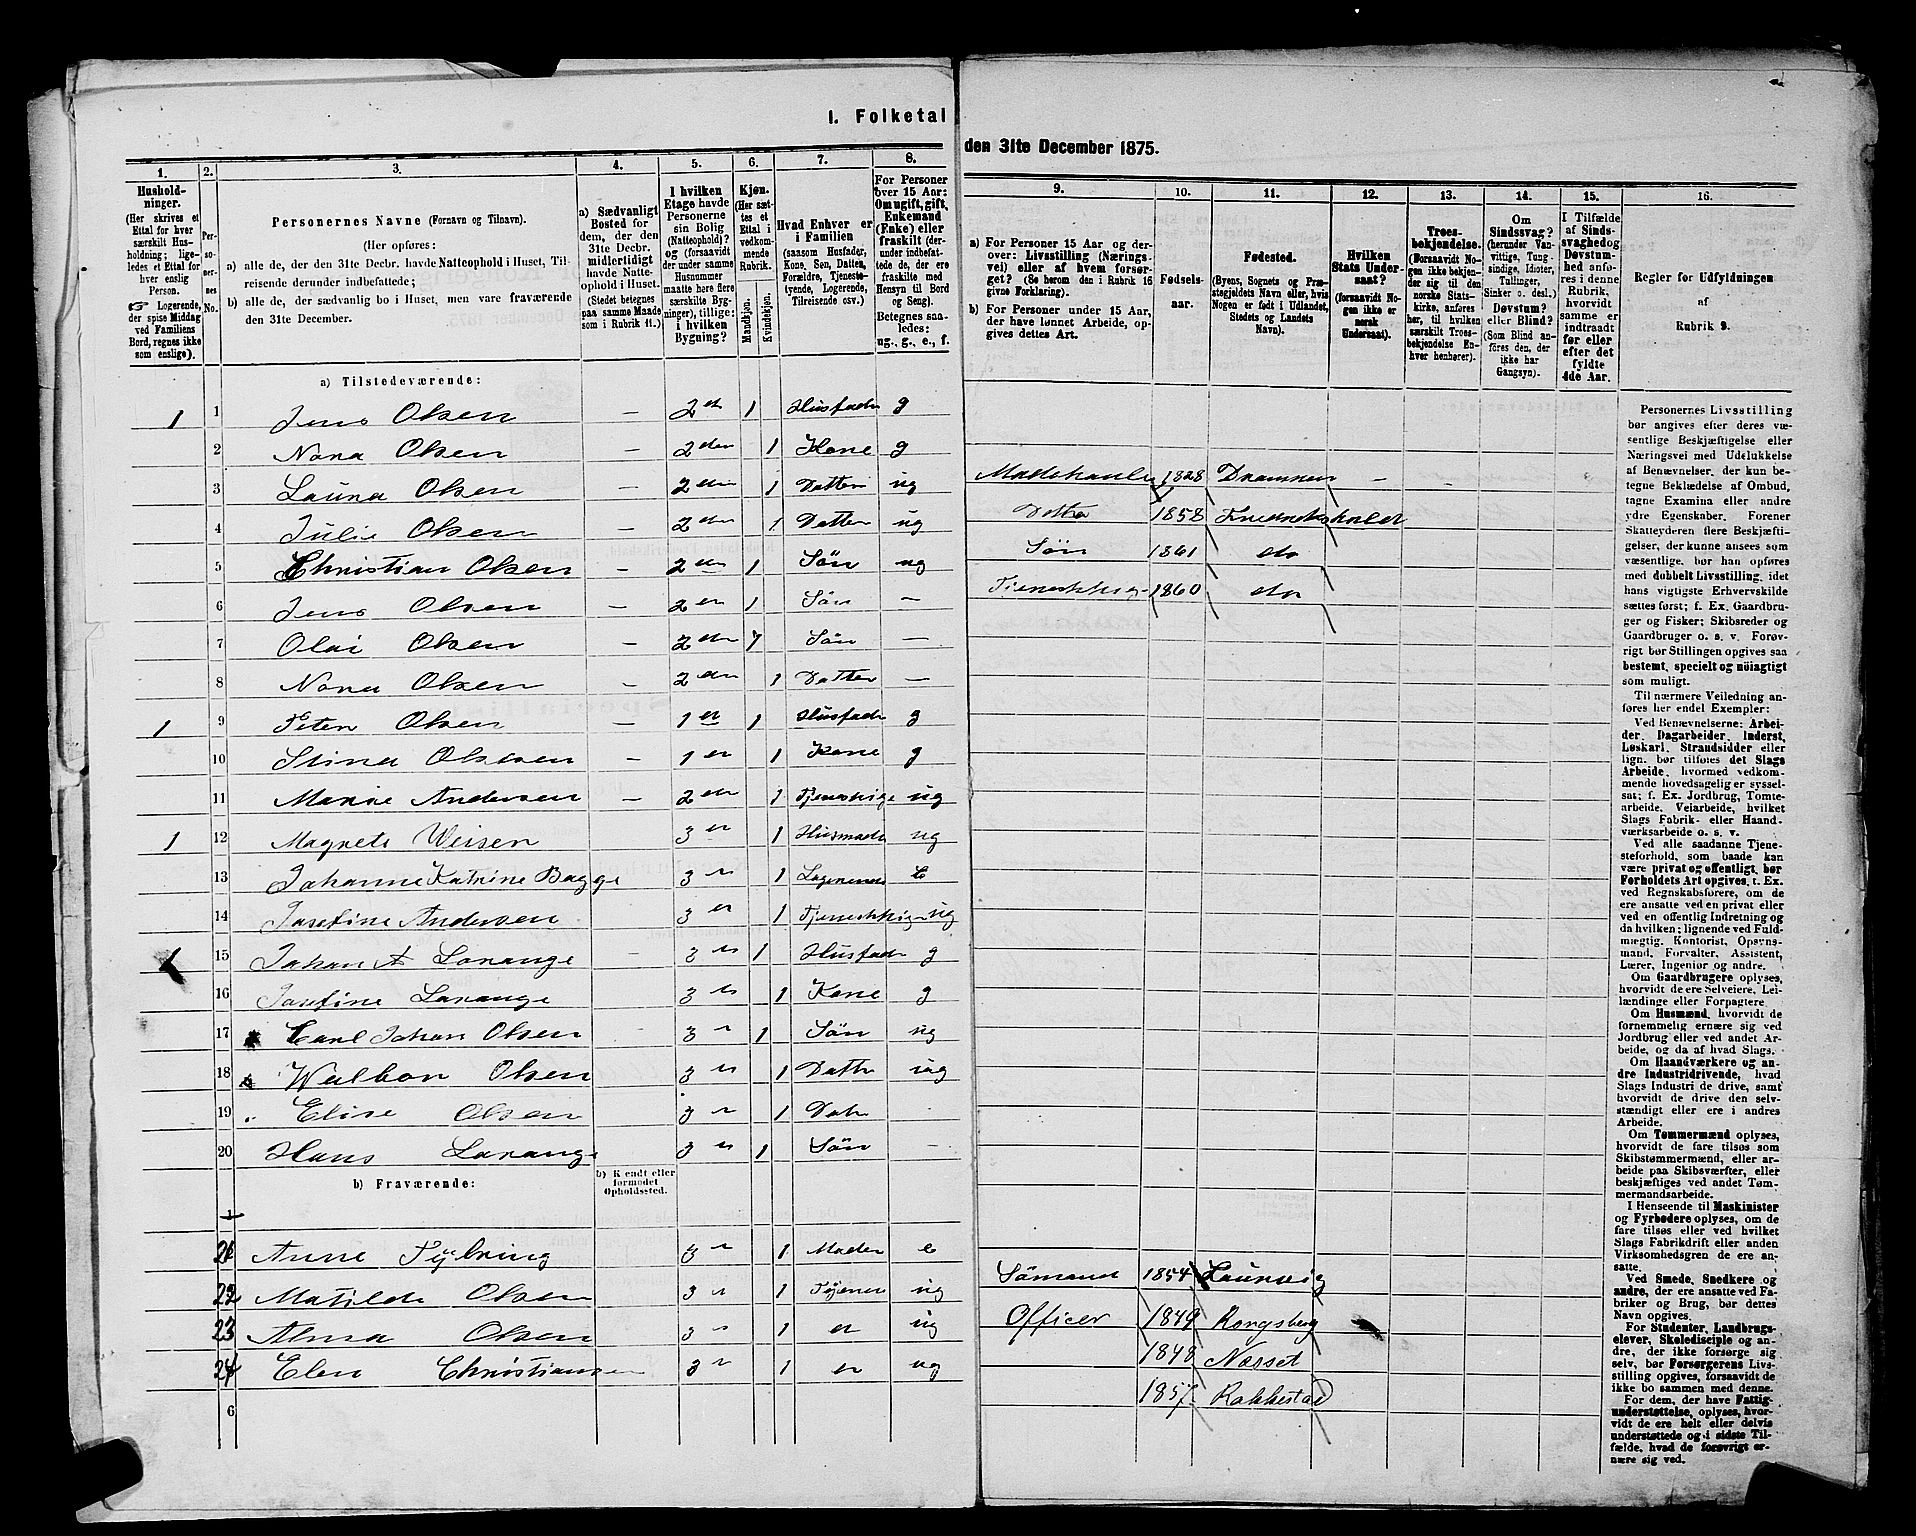 1. Folketal
den 31te December 1875.
1. 2. 3. 4. 5. 6. 7. 8.
Hushold-
ninger.
(Her skrives et
Ettal for hver
særskilt Hus-
holdning; lige-
ledes et Ettal for
hver enslig
Person.
☞ Logerende,
der spise Middag
ved Familiens
Bord, regnes ikke
som enslige).
Per-
so-
ner-
nes
No.
Personernes Navne (Fornavn og Tilnavn).
(Her opføres:
a) alle de, der den 31te Decbr. havde Natteophold i Huset, Til-
reisende derunder indbefattede;
b) alle de, der sædvanlig bo i Huset, men vare fraværende
den 31te December.
a) Sædvanligt
Bosted for
dem, der den
31te Decbr.
midlertidigt
havde Natte-
ophold i Huset.
(Stedet betegnes
paa samme Maade
som i Rubrik 11.)
I hvilken
Etage havde
Personerne
sin Bolig
(Natteophold)?
(forsaavidt
der under samme
Husnummer
maatte høre flere
særskilte Byg-
ninger), tillige:
i hvilken
Bygning?
Kjøn.
(Her sæt-
tes et
Ettal i
vedkom-
mende
Rubrik.
Mandkjøn.
Kvindekjøn.
Hvad Enhver er
i Familien
(saasom Husfader,
Kone, Søn, Datter,
Forældre, Tjeneste-
tyende, Logerende,
Tilreisende osv.)
For Personer
over 15 Aar:
Om ugift, gift,
Enkemand
(Enke) eller
fraskilt (der-
under indbefat-
tede de, der ere
fraskilte med
Hensyn til Bord
og Seng).
Betegnes saa-
ledes:
ug., g., e., f.
9. 10. 11. 12. 13. 14. 15. 16.
a) For Personer 15 Aar og der-
over: Livsstilling (Nærings-
vei) eller af hvem forsør-
get? (Se herom den i Rubrik 16
givne Forklaring).
b) For Personer under 15 Aar,
der have lønnet Arbeide, op-
gives dettes Art.
Fødsels-
aar.
Fødested.
(Byens, Sognets og Præ-
stegjeldets Navn eller, hvis
Nogen er født i Udlandet,
Stedets og Landets
Navn).
Hvilken
Stats Under-
saat?
(forsaavidt No-
gen ikke er
norsk
Undersaat).
Troes-
bekjendelse.
(Forsaavidt No-
gen ikke bekjen-
der sig til den
norske Stats-
kirke, anføres
her, til hvilken
særskilt Troes-
bekjendelse En-
hver henhører).
Om
Sindssvag?
(herunder Van-
vittige, Tung-
sindige, Idioter,
Tullinger,
Sinker o. desl.)
Døvstum?
eller Blind?
(Som Blind an-
føres den, der
ikke har
Gangsyn).
I Tilfælde
af Sinds-
svaghed og
Døvstum-
hed anfø-
res i denne
Rubrik,
hvorvidt
samme er
indtraadt
før eller
efter det
fyldte
4de Aar.
Regler for Udfyldningen
af
Rubrik 9.
a) Tilstedeværende:
1 1 Jens Olsen — 2 1 Husfader g
2 Nora Olsen — 2den 1 Kone g
3 Laura Olsen — 2den 1 Datter ug
4 Julie Olsen — 2den 1 Datter ug
5 Christian Olsen — 2den 1 Søn ug
6 Jens Olsen — 2en 1 Søn —
7 Olai Olsen — 2den 1 Søn —
8 Nora Olsen — 2den 1 Datter —
1 9 Peter Olsen — 1 1 Husfader g
10 Stina Olsen — 1 1 Kone g
11 Marie Andersen — 2den 1 Tjenestpige ug
1 12 Magnete Weisen 3 1 Husmoder ug
13 Johanne Katrine Bagge 3 1 E
14 Josefine Andersen 3 1 Tjenestpige ug
1 15 Johan A Lorange 3 1 Husfader g
16 Josefine Lorange 3 1 Kone g
17 Carl Johan Olsen 3 1 Søn ug
18 Walbor Olsen 3 1 Datter ug
19 Elise Olsen 3 1 Datr
20 Hans Lorange 3 1 Søn —
Drammen
1828
Datter 1858
Søn 1861 do
Tjenestpige 1860 do
b) Fraværende:
b) Kjendt eller
formodet
Opholdssted.
21 Anne 3 1 Moder e
22 Matilde Olsen 3 1 ug
23 Alma Olsen 3 1 ug
24 Elen Christiansen 3 1 ug
6
Sømand 1854 Laurvig
Officer 1849 Kongsberg
1848 Næsset
1857 Rakkestad
Personernes Livsstilling
bør angives efter deres væ-
sentlige Beskjæftigelse eller
Næringsvei med Udelukkelse
af Benævnelser, der kun be-
tegne Beklædelse af Ombud,
tagne Examina eller andre
ydre Egenskaber. Forener
Skatteyderen flere Beskjæfti-
gelser, der kunne ansees som
væsentlige, bør han opføres
med dobbelt Livsstilling, idet
hans vigtigste Erhvervskilde
sættes først; f. Ex. Gaardbru-
ger og Fisker; Skibsreder og
Gaardbruger o. s. v. Forøv-
rigt bør Stillingen opgives saa
bestemt, specielt og nøiagtigt
som muligt.
Til nærmere Veiledning an-
føres her endel Exempler:
Ved Benævnelserne: Arbei-
der, Dagarbeider, Inderst,
Løskarl, Strandsidder eller
lign. bør tilføres det Slags
Arbeide, hvormed vedkom-
mende hovedsagelig er syssel-
sat; f. Ex. Jordbrug, Tomte-
arbeide, Veiarbeide, hvilket
Slags Fabrik- eller Haand-
værksarbeide o. s. v.
Ved alle saadanne Tjene-
steforhold, som baade kan
være privat og offentligt, bør
Forholdets Art opgives, t. Ex.
ved Regnskabsførere, om de
ere ansatte ved en privat eller
ved en offentlig Indretning og
da hvilken; lignende ved Fuld-
mægtig, Kontorist, Opsyns-
mand, Forvalter, Assistent,
Lærer, Ingeniør og andre.
Om Gaardbrugere oplyses,
hvorvidt de ere Selveiere, Lei-
lændinge eller Forpagtere.
Om Husmænd, hvorvidt de
fornemmelig ernære sig ved
Jordbrug eller ved andet Ar-
beide, og da af hvad Slags.
Om Haandværkere og an-
dre Industridrivende, hvad
Slags Industri de drive, samt
hvorvidt de drive den selv-
stændigt eller ere i andres
Arbeide.
Om Tømmermænd oplyses,
hvorvidt de fare tilsøs som
Skibstømmermænd, eller ar-
beide paa Skibsværfter, eller
beskjæftiges ved andet Tøm-
mermandsarbeide.
I Henseende til Maskinister
og Fyrbødere oplyses, om de
fare tilsøs eller ved hvilket
Slags Fabrikdrift eller anden
Virksomhedsgren de ere an-
satte.
Ved Smede, Snedkere og
andre, der ere ansatte ved Fa-
briker og Brug, bør dettes
Navn opgives.
For Studenter, Landbrugs-
elever, Skoledisciple og an-
dre, der ikke forsørge sig
selv, bør Forsørgerens Livs-
stilling opgives, forsaavidt de
ikke bo sammen med denne.
For dem, der have Fattig-
understøttelse, oplyses, hvor-
vidt de ere helt eller delvis
understøttede og i sidste Til-
fælde, hvad de forøvrigt er-
nære sig ved.